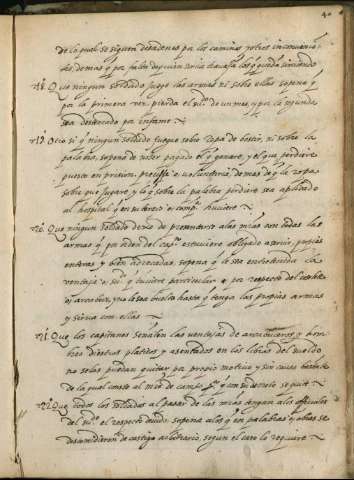 40
de la qual se siguen desordenes por los caminos y otros inconvenien
tes demas q por falta de quien tire la
18 Que ningun soldado juegue las armas ni sobre ellas sopena q
por la primera vez pierda el sueldo de un mes, y por la segunda
sea desterrado por infame
19 Otro si q ningun soldado juegue sobre ropa de bestir, ni sobre la
palabra, sopena de no ser pagado el q ganare, y el que perdiere
puesto en prision, y demas de q la ropa
sobre que jugare, y lo q sobre la palabra perdiere sea aplicado
al hospital q en su tercio o comp.ª huviere
20 Que ningun soldado dexe de presentarse a las mias con todas las
armas q por orden del cap.n estuviere obligado a servir, propias
enteras y bien adreçadas, sopena q le sea
ventaja si q tuviere particular, o por respecto del coselete
o arcabuz, y no le sea buelta hasta q tenga las propias armas
y sirva con ellas
21 Que los capitanes señalen las ventajas de arcabuceros y hom
bres platicos y asentados en los libros del sueldo
no selas puedan quitar por proprio motivo y sin causa bastante
de la qual conste al m.re de campo y con su decreto se quite
22 Que todos los soldados al pasar de las mias tengan alos officiales
del su.do el respecto devido sopena q los q en palabras o obras se
descomidieren se castigue arbitrario, segun el caso lo requiere